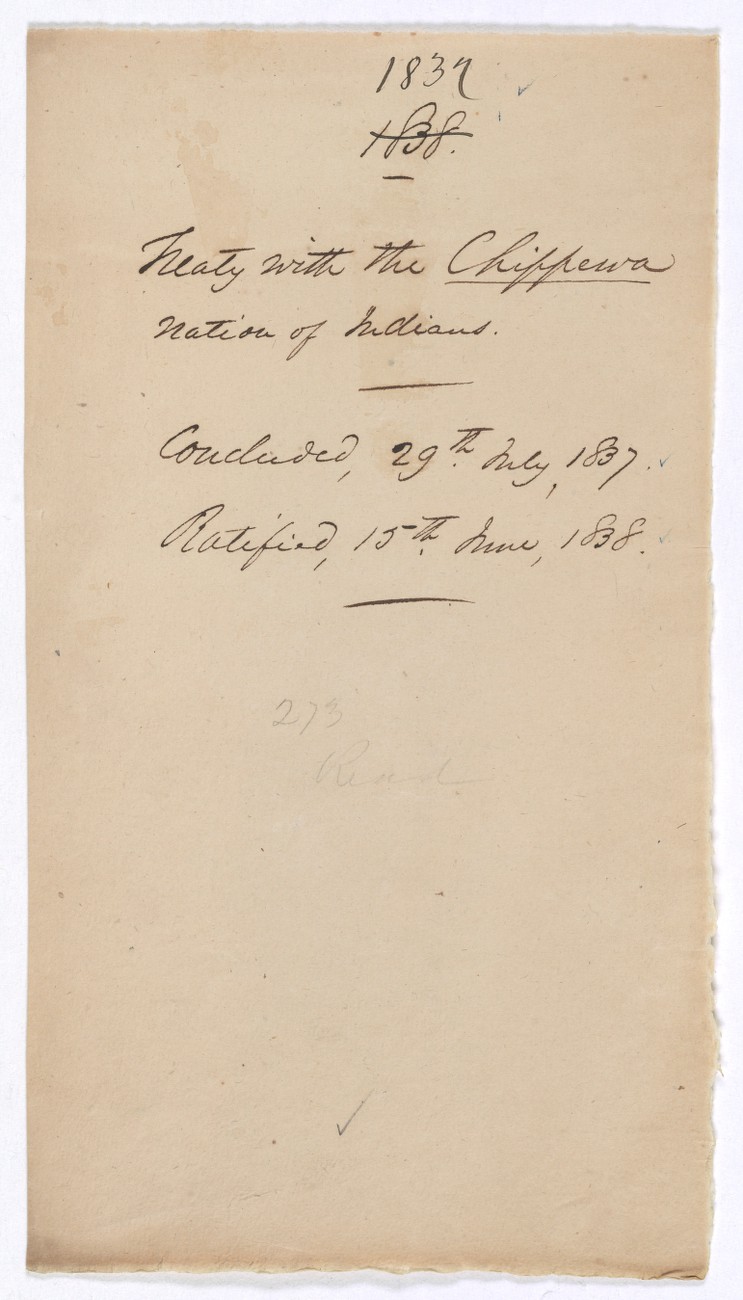 1837
1838.
Treaty with the Chippewa
nation of Indians.
Concluded, 29th. July, 1837.
Ratified, 15th. June, 1838.
273
Read